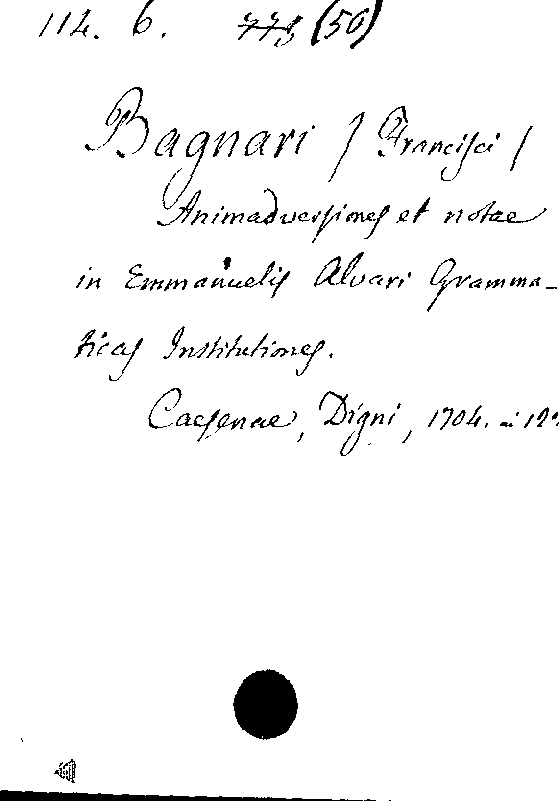 114. 6. 773 (56)
Bagnari / Francisci /
Animadversiones et notae
in Emmanuelis Alvari Gramma-
ticas Institutiones.
Caesenae, Digni, 1704. in 12º